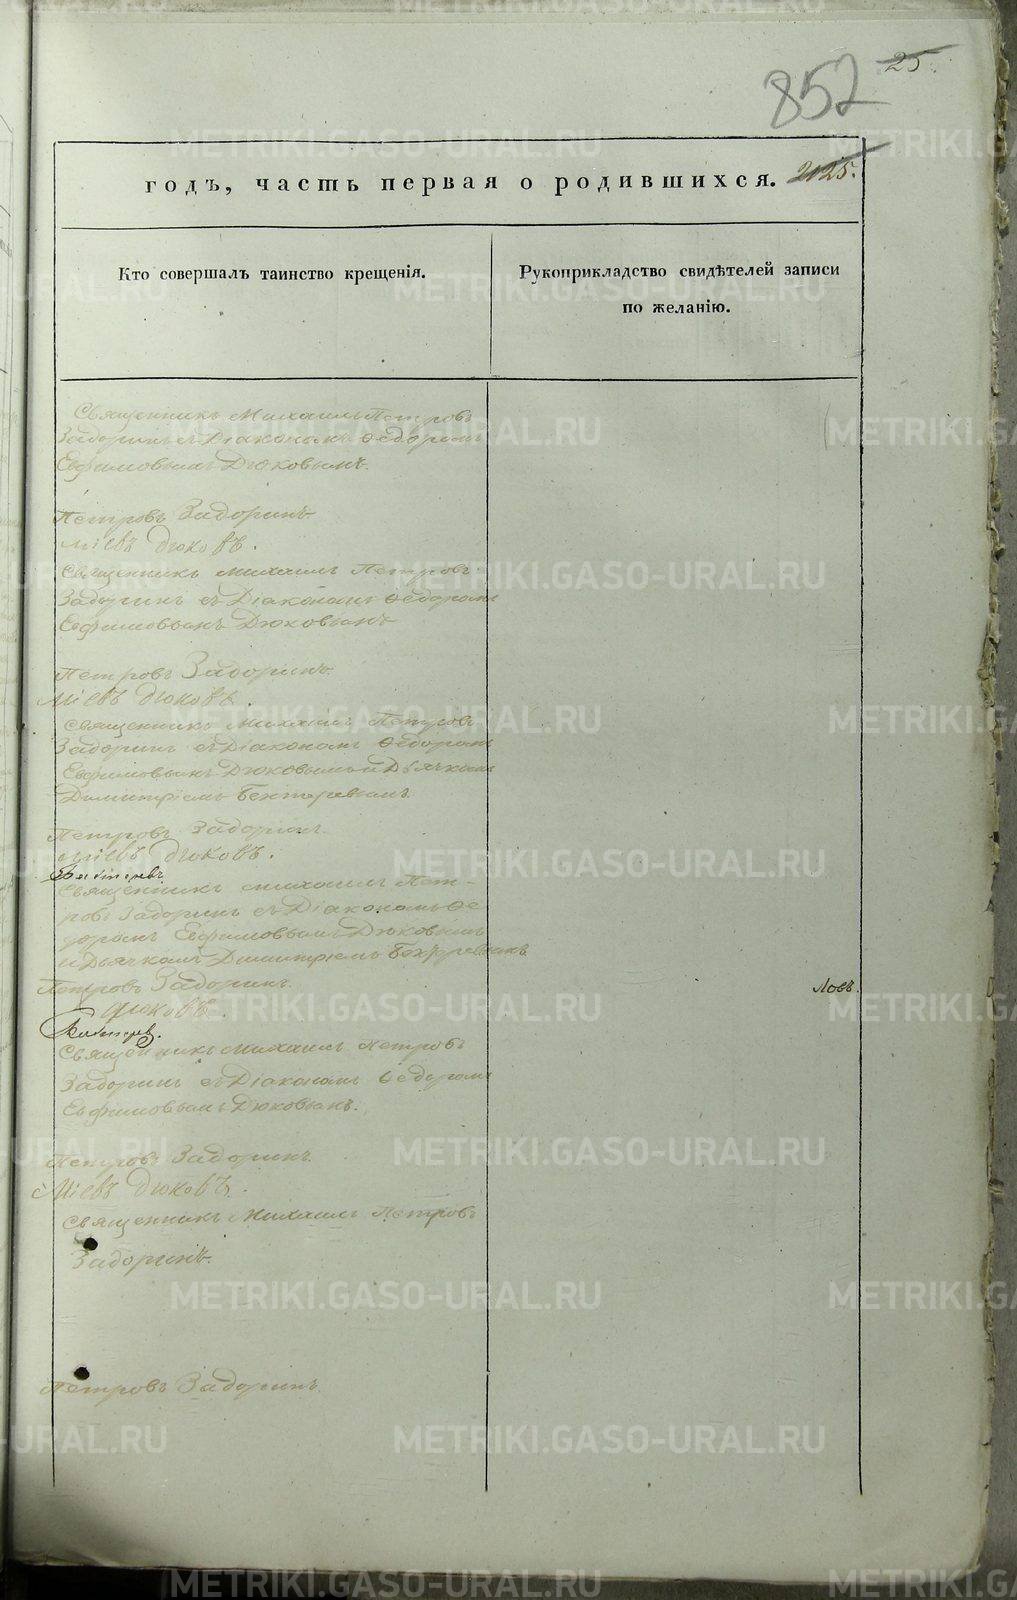 25.
852
годъ, часть первая о родившихся.
Кто совершалъ таинство крещенія.
Рукоприкладство свидѣтелей записи
по желанію.
Священникъ Михаилъ Петровъ
Задоринъ съ Діакономъ Ѳедоромъ
Евфимовымъ Дюковымъ.
Петровъ Задоринъ
міевъ Дюковъ.
Священникъ Михаилъ Петровъ
Задоринъ съ Діакономъ Ѳедоромъ
Евфимовымъ Дюковымъ
Петровъ Задоринъ.
міевъ Дюковъ.
Священникъ Михаилъ Петровъ
Задоринъ съ Діакономъ Ѳедоромъ
Евфимовымъ Дюковымъ и Дьячкомъ
Димитріемъ Бехтеревымъ.
Петровъ Задоринъ.
міевъ Дюковъ.
Бехтеревъ
Священникъ Михаилъ Пет-
ровъ Задоринъ съ Діакономъ Ѳе
доромъ Евфимовымъ Дюковымъ
и Дьячкомъ Димитріемъ Бехтеревымъ
Петровъ Задоринъ.
Дюковъ.
ловъ.
Бехтерев.
Священникъ Михаилъ Петровъ
Задоринъ съ Діакономъ Ѳедоромъ
Евфимовымъ Дюковымъ.
Петровъ Задоринъ.
міевъ Дюковъ.
Священникъ Михаилъ Петровъ
Задоринъ.
Петровъ Задоринъ.
METRIKI.GASO-URAL.RU